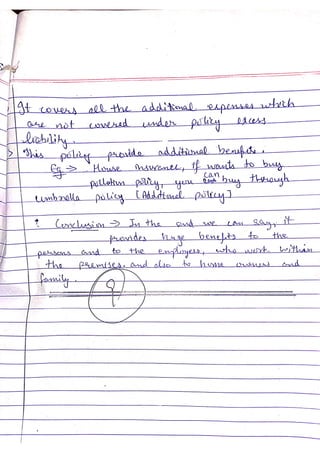 It covers all the additional expenses which
are not covered under policy excess
liability.
> This policy provide additional benefits.
Eg → House insurance, if wants to buy
pollution policy, you can buy through
umbrella policy [Additional policy]
* Conclusion → In the end we can say, it
provides huge benefits to the
persons and to the employees, who work within
the premises and also to home owners and
family.
9